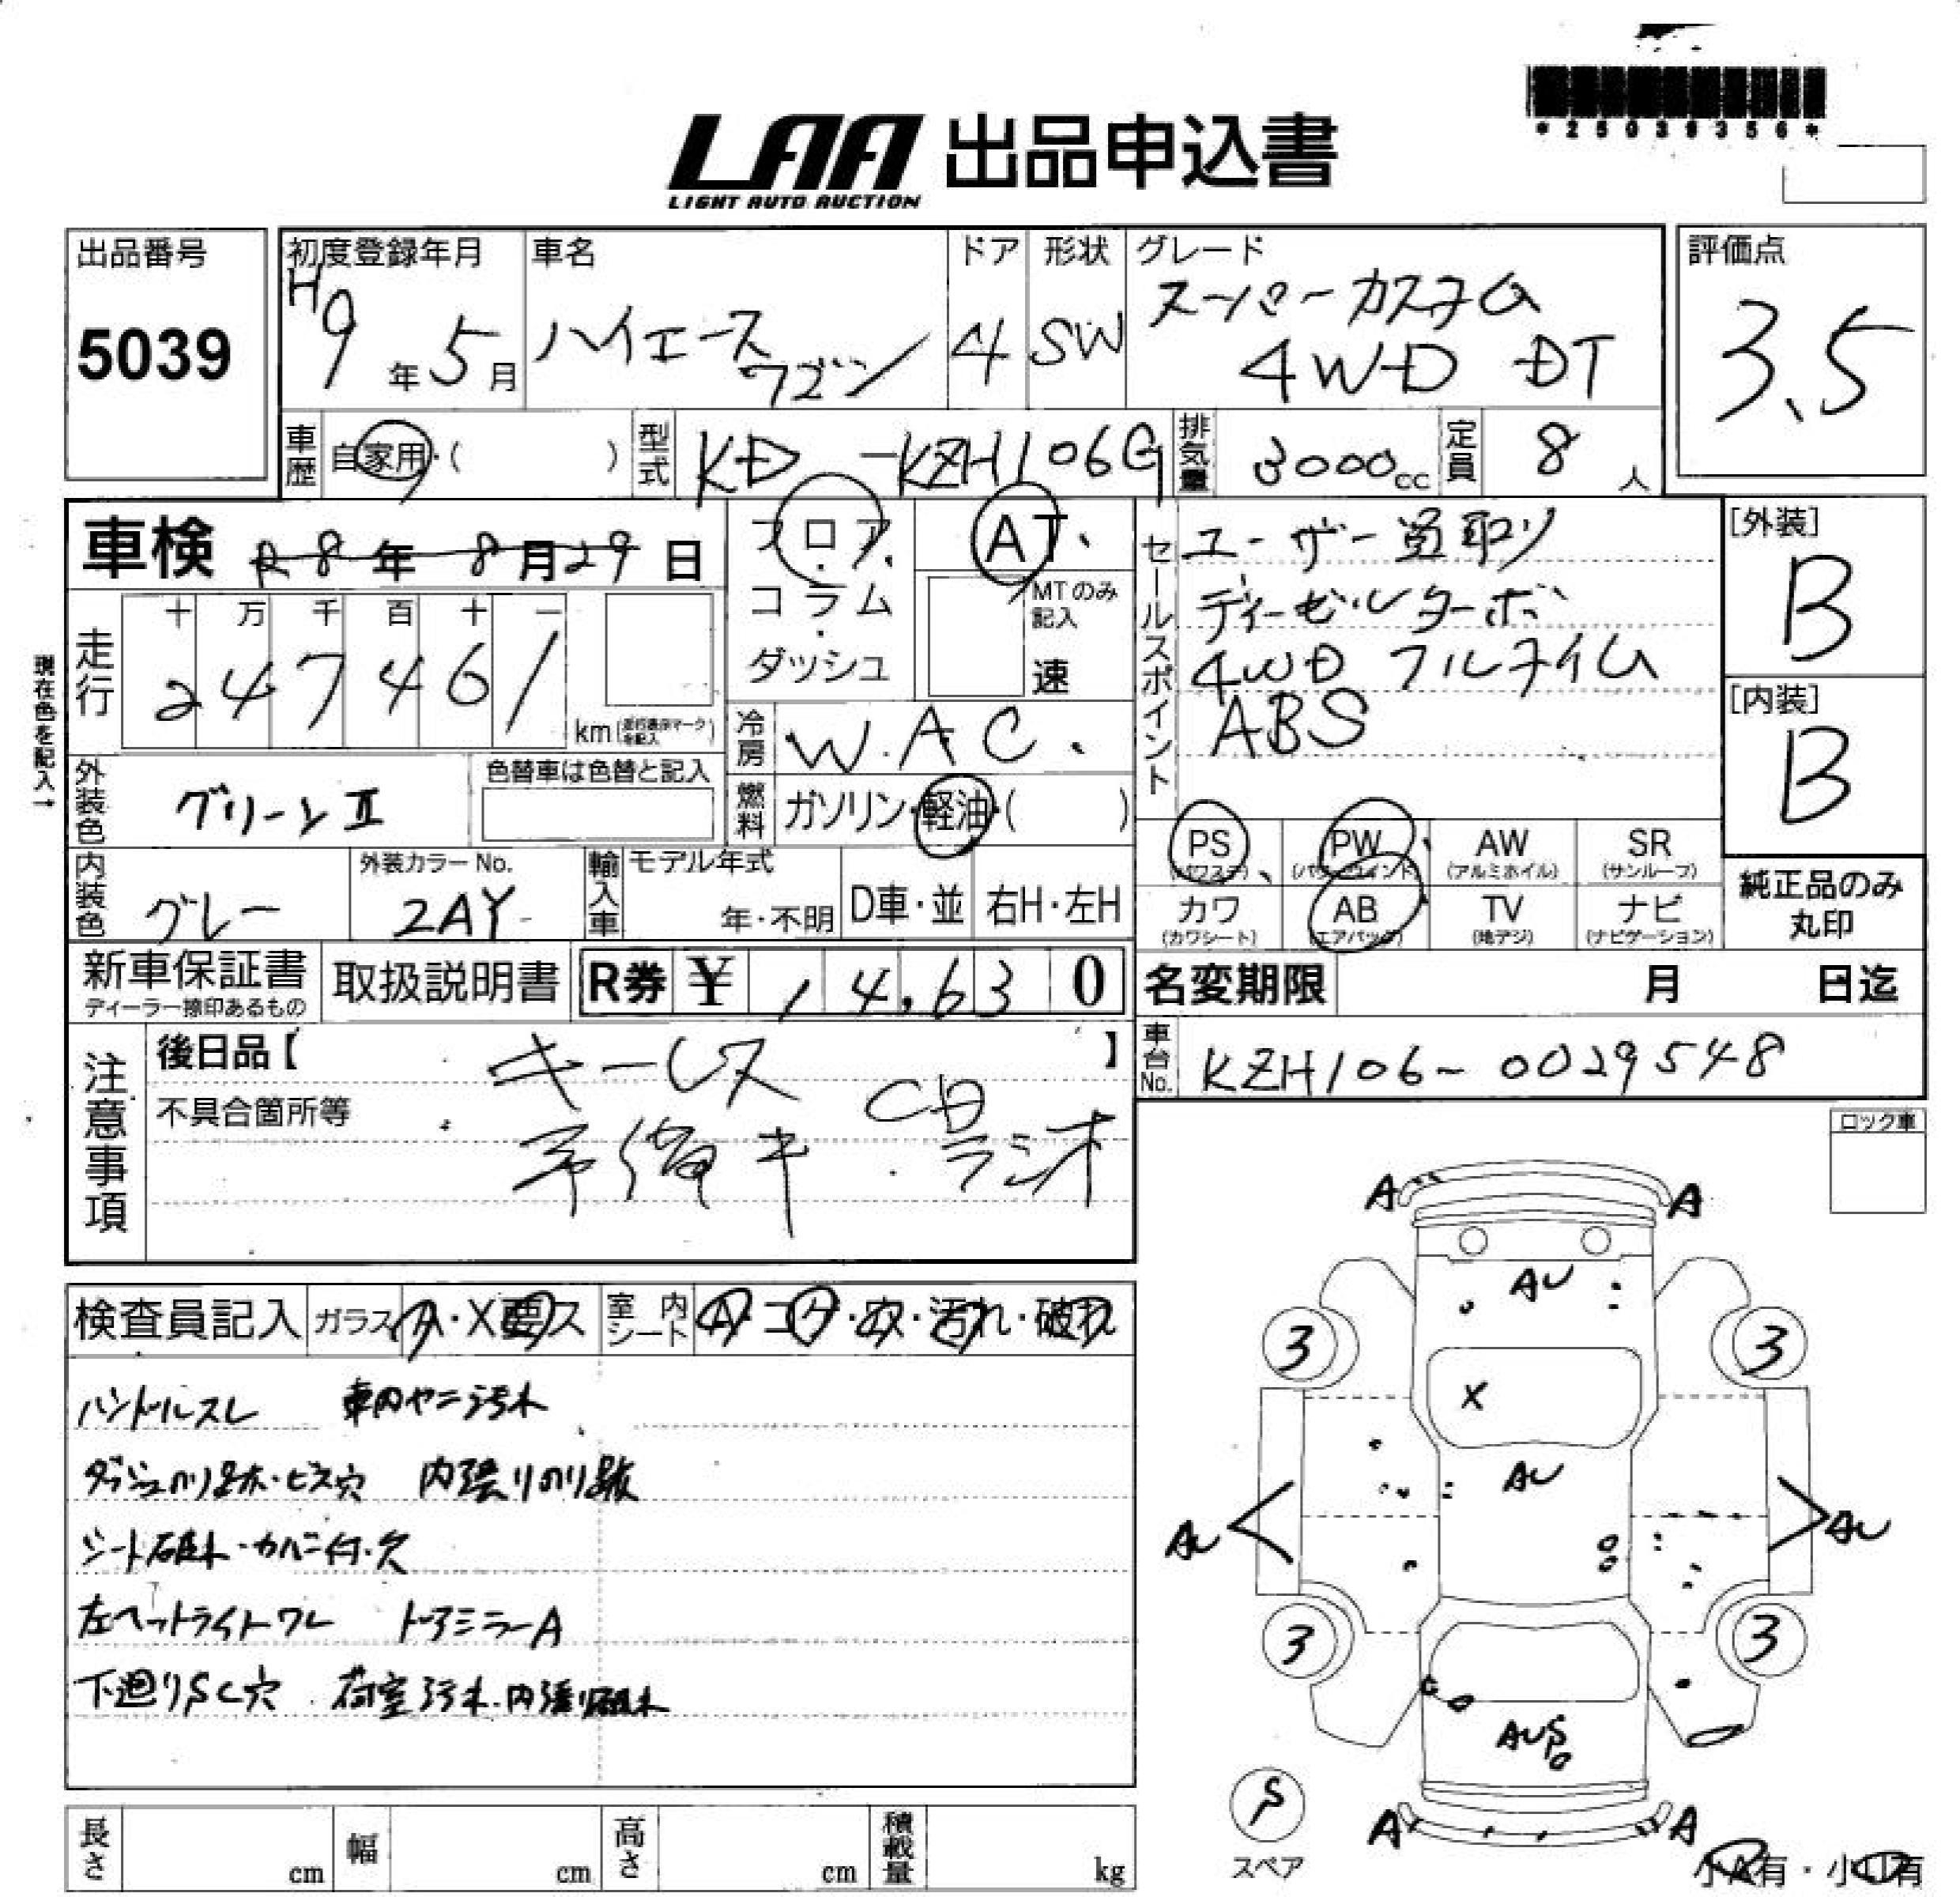 *25039356*
LAA 出品申込書
LIGHT AUTO AUCTION
出品番号
5039
初度登録年月
H9年5月
車名
ハイエース
ワゴン
ドア
4
形状
SW
グレード
スーパーカスタム
4WD DT
評価点
3.5
車歴 自家用・( )
型式 KD-KZH106G
排気量 3000cc
定員 8人
車検 R8年8月29日
フロア・コラム・ダッシュ
AT、
MTのみ記入
速
セールスポイント
ユーザー買取り
ディーゼルターボ
4WD フルタイム
ABS
[外装]
B
[内装]
B
現在色を記入→
走行
十 万 千 百 十 一
2 4 7 4 6 1
km(走行表示マークを記入)
冷房 W.A.C.
外装色 グリーンII
色替車は色替と記入
燃料 ガソリン・軽油・( )
PS (パワステ)
PW (パワーウインド)
AW (アルミホイル)
SR (サンルーフ)
カワ (カワシート)
AB (エアバッグ)
TV (地デジ)
ナビ (ナビゲーション)
純正品のみ
丸印
内装色 グレー
外装カラーNo.
2AY
輸入車 モデル年式
年・不明
D車・並
右H・左H
新車保証書
ディーラー捺印あるもの
取扱説明書
R券 ¥ 14,630
名変期限 月 日迄
車台No. KZH106-0029548
注意事項
後日品【 】
キーレス
不具合箇所等
予備キー CD
ラジオ
ロック車
検査員記入 ガラス A・X要ス 室内シート A・コゲ・穴・汚れ・破れ
ハンドルスレ 車内ヤニ汚れ
ダッシュのり跡・ビス穴 内張りのり跡
シート破れ・カバー付・穴
左ヘッドライトワレ ドアミラーA
下廻りSC穴 荷室汚れ・内張り破れ
A A
AU
3 3
X
AU
AU AU
3 3
AUS
S
スペア
A A
小A有・小U有
長さ cm
幅 cm
高さ cm
積載量 kg